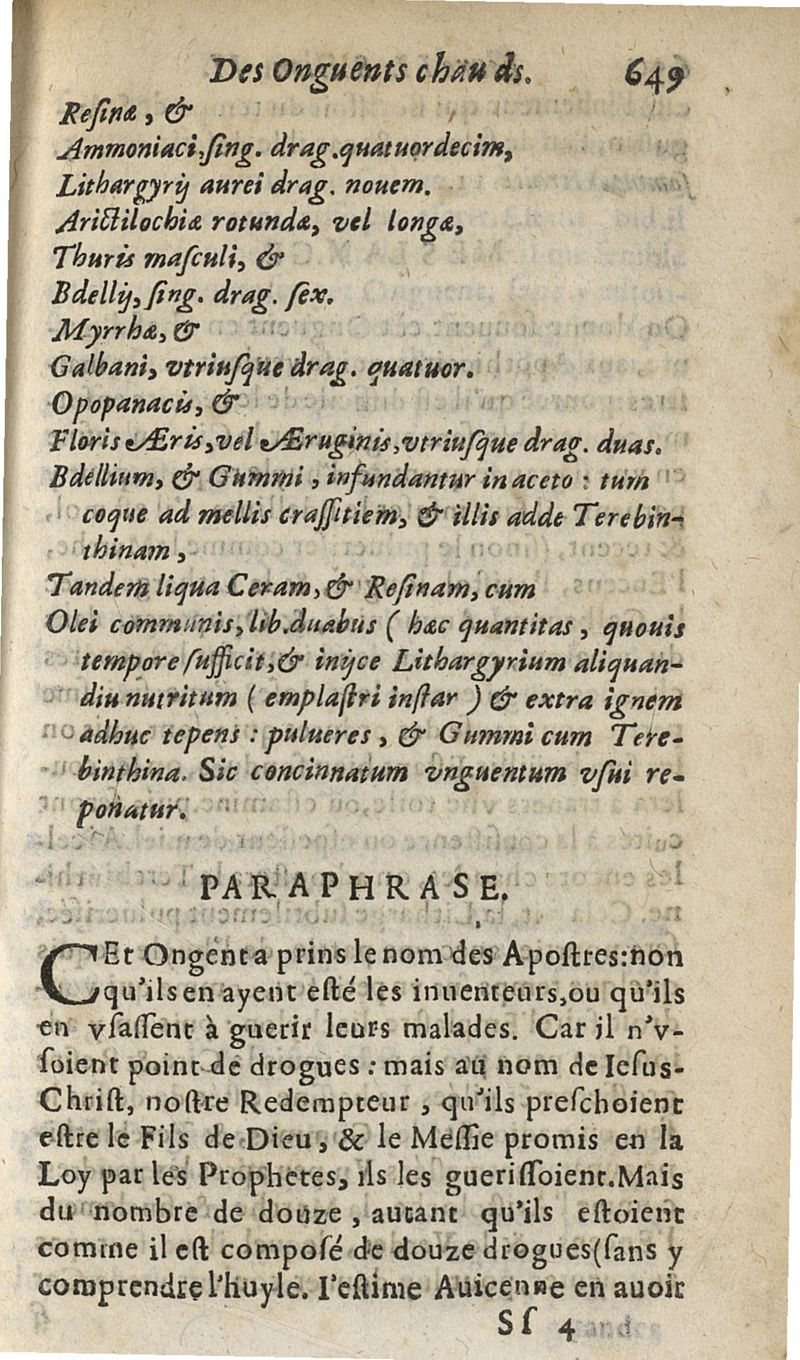 Des Onguents chauds. 649
Resinæ, &
Ammoniaci, sing. drag. quatuordecim,
Lithargyrij aurei drag. nouem.
Arictilochiæ rotundæ, vel longæ,
Thuris masculi, &
Bdellij, sing. drag. sex.
Myrrhæ, &
Galbani, vtriusque drag. quatuor.
Opopanacis, &
Floris Æris, vel Æruginis, vtriusque drag. duas.
Bdellium, & Gummi, infundantur in aceto : tum
coque ad mellis crassitiem, & illis adde Terebin-
thinam,
Tandem liqua Ceram, & Resinam, cum
Olei communis, lib. duabus ( hæc quantitas, quouis
tempore sufficit, & inijce Lithargyrium aliquan-
diu nutritum ( emplastri instar ) & extra ignem
adhuc tepens : pulueres, & Gummi cum Tere-
binthina. Sic concinnatum vnguentum vsui re-
ponatur.
PARAPHRASE.
CEt Ongent a prins le nom des Apostres: non
qu'ils en ayent esté les inuenteurs, ou qu'ils
en vsassent à guerir leurs malades. Car il n'v-
soient point de drogues : mais au nom de Iesus-
Christ, nostre Redempteur, qu'ils preschoient
estre le Fils de Dieu, & le Messie promis en la
Loy par les Prophetes, ils les guerissoient. Mais
du nombre de douze, autant qu'ils estoient
comme il est composé de douze drogues (sans y
comprendre l'huyle. I'estime Auicenne en auoir
Sſ 4